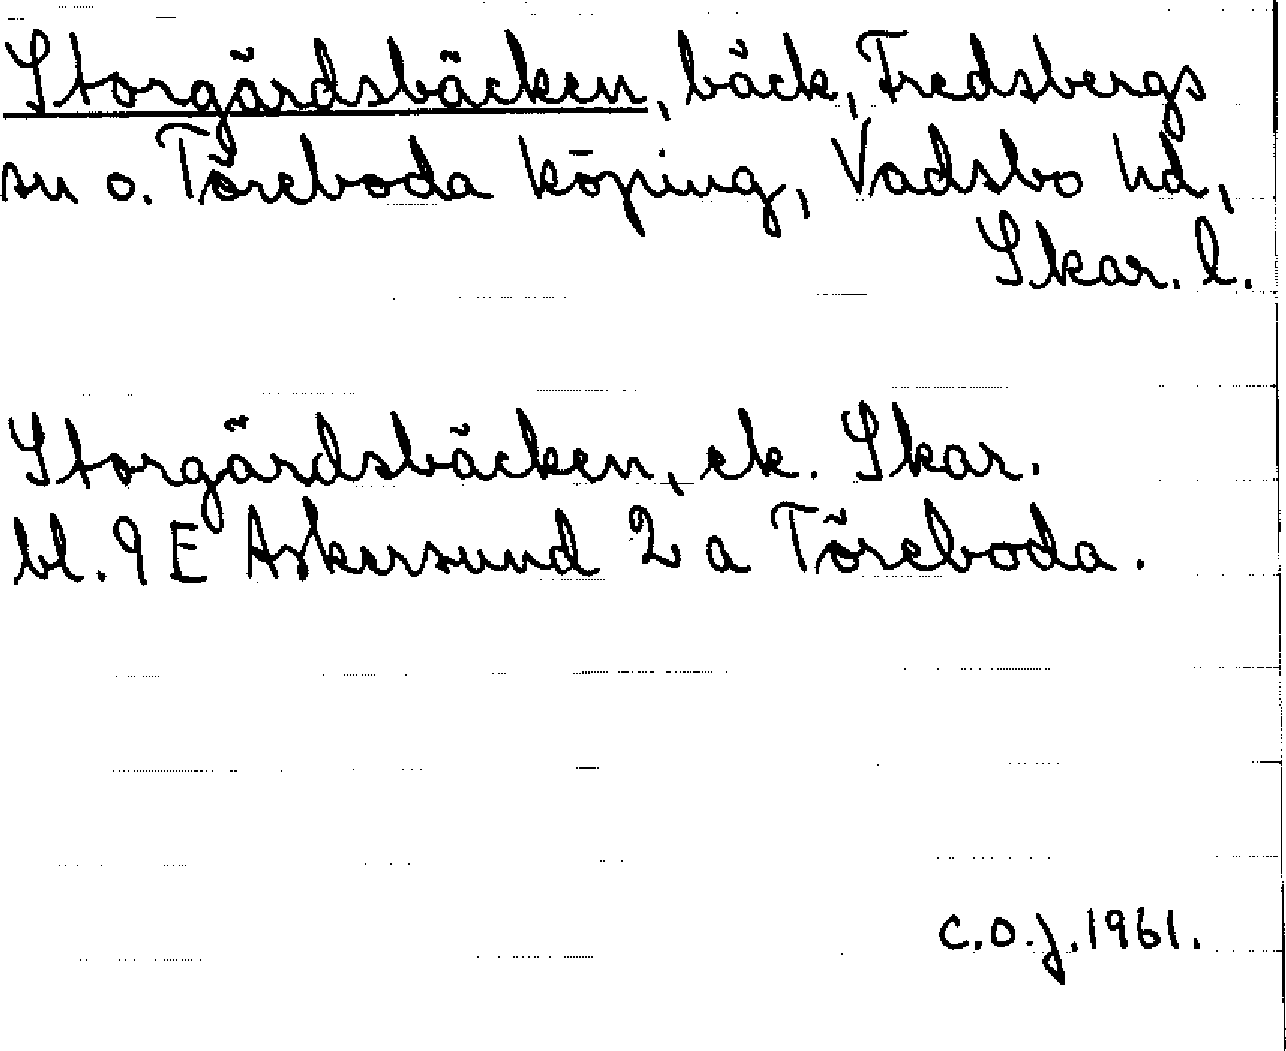 Storgårdsbäcken, bäck, Fredsbergs
sn o. Töreboda köping, Vadsbo hd,
Skar. l.
Storgårdsbäcken, ek. Skar.
bl. 9 E Askersund 2 a Töreboda.
C.O.J. 1961.